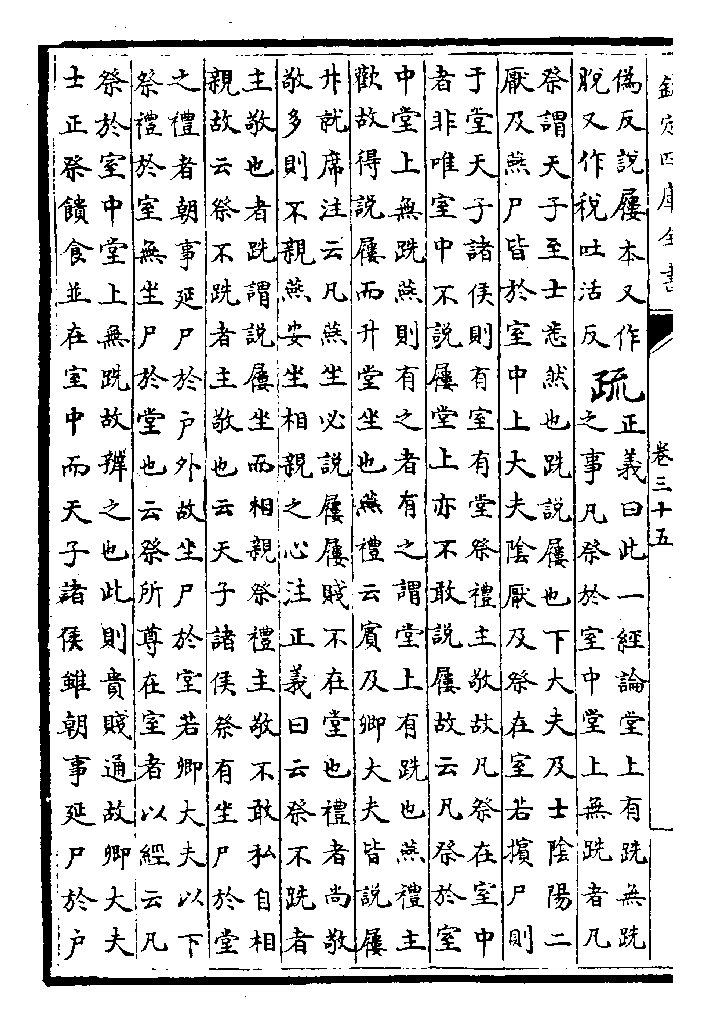 欽定四庫全書
卷三十五
偽反說屨本又作
脫又作稅吐活反
疏
正義曰此一經論堂上有跣無跣
之事凡祭於室中堂上無跣者凡
祭謂天子至士悉然也跣說屨也下大夫及士陰陽二
厭及燕尸皆於室中上大夫陰厭及祭在室若擯尸則
于堂天子諸侯則有室有堂祭禮主敬故凡祭在室中
者非唯室中不說屨堂上亦不敢說屨故云凡祭於室
中堂上無跣燕則有之者有之謂堂上有跣也燕禮主
歡故得說屨而升堂坐也燕禮云賓及卿大夫皆說屨
升就席注云凡燕坐必說屨屨賤不在堂也禮者尚敬
敬多則不親燕安坐相親之心注正義曰云祭不跣者
主敬也者跣謂說屨坐而相親祭禮主敬不敢私自相
親故云祭不跣者主敬也云天子諸侯祭有坐尸於堂
之禮者朝事延尸於户外故坐尸於室若卿大夫以下
祭禮於室無坐尸於堂也云祭所尊在室者以經云凡
祭於室中堂上無跣故辨之也此則貴賤通故卿大夫
士正祭饋食並在室中而天子諸侯雖朝事延尸於户